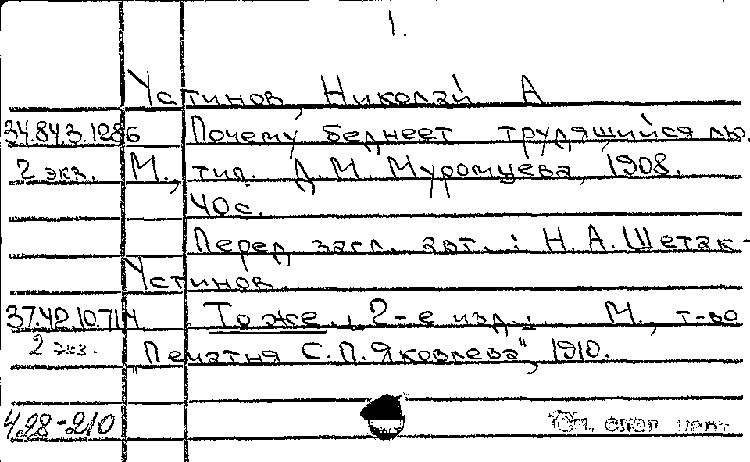 1.
Устинов, Николай А
34.84.3.1286 Почему беднеет трудящийся лю.
2 экз. М., тип. Д. М. Муромцева, 1908.
40 с.
Перед загл. авт.: Н. А. Шетак-
Устинов.
37.42.10.714 То же., 2-е изд.: М., т-во
2 экз. "Печатня С. П. Яковлева", 1910.
428-210 См.